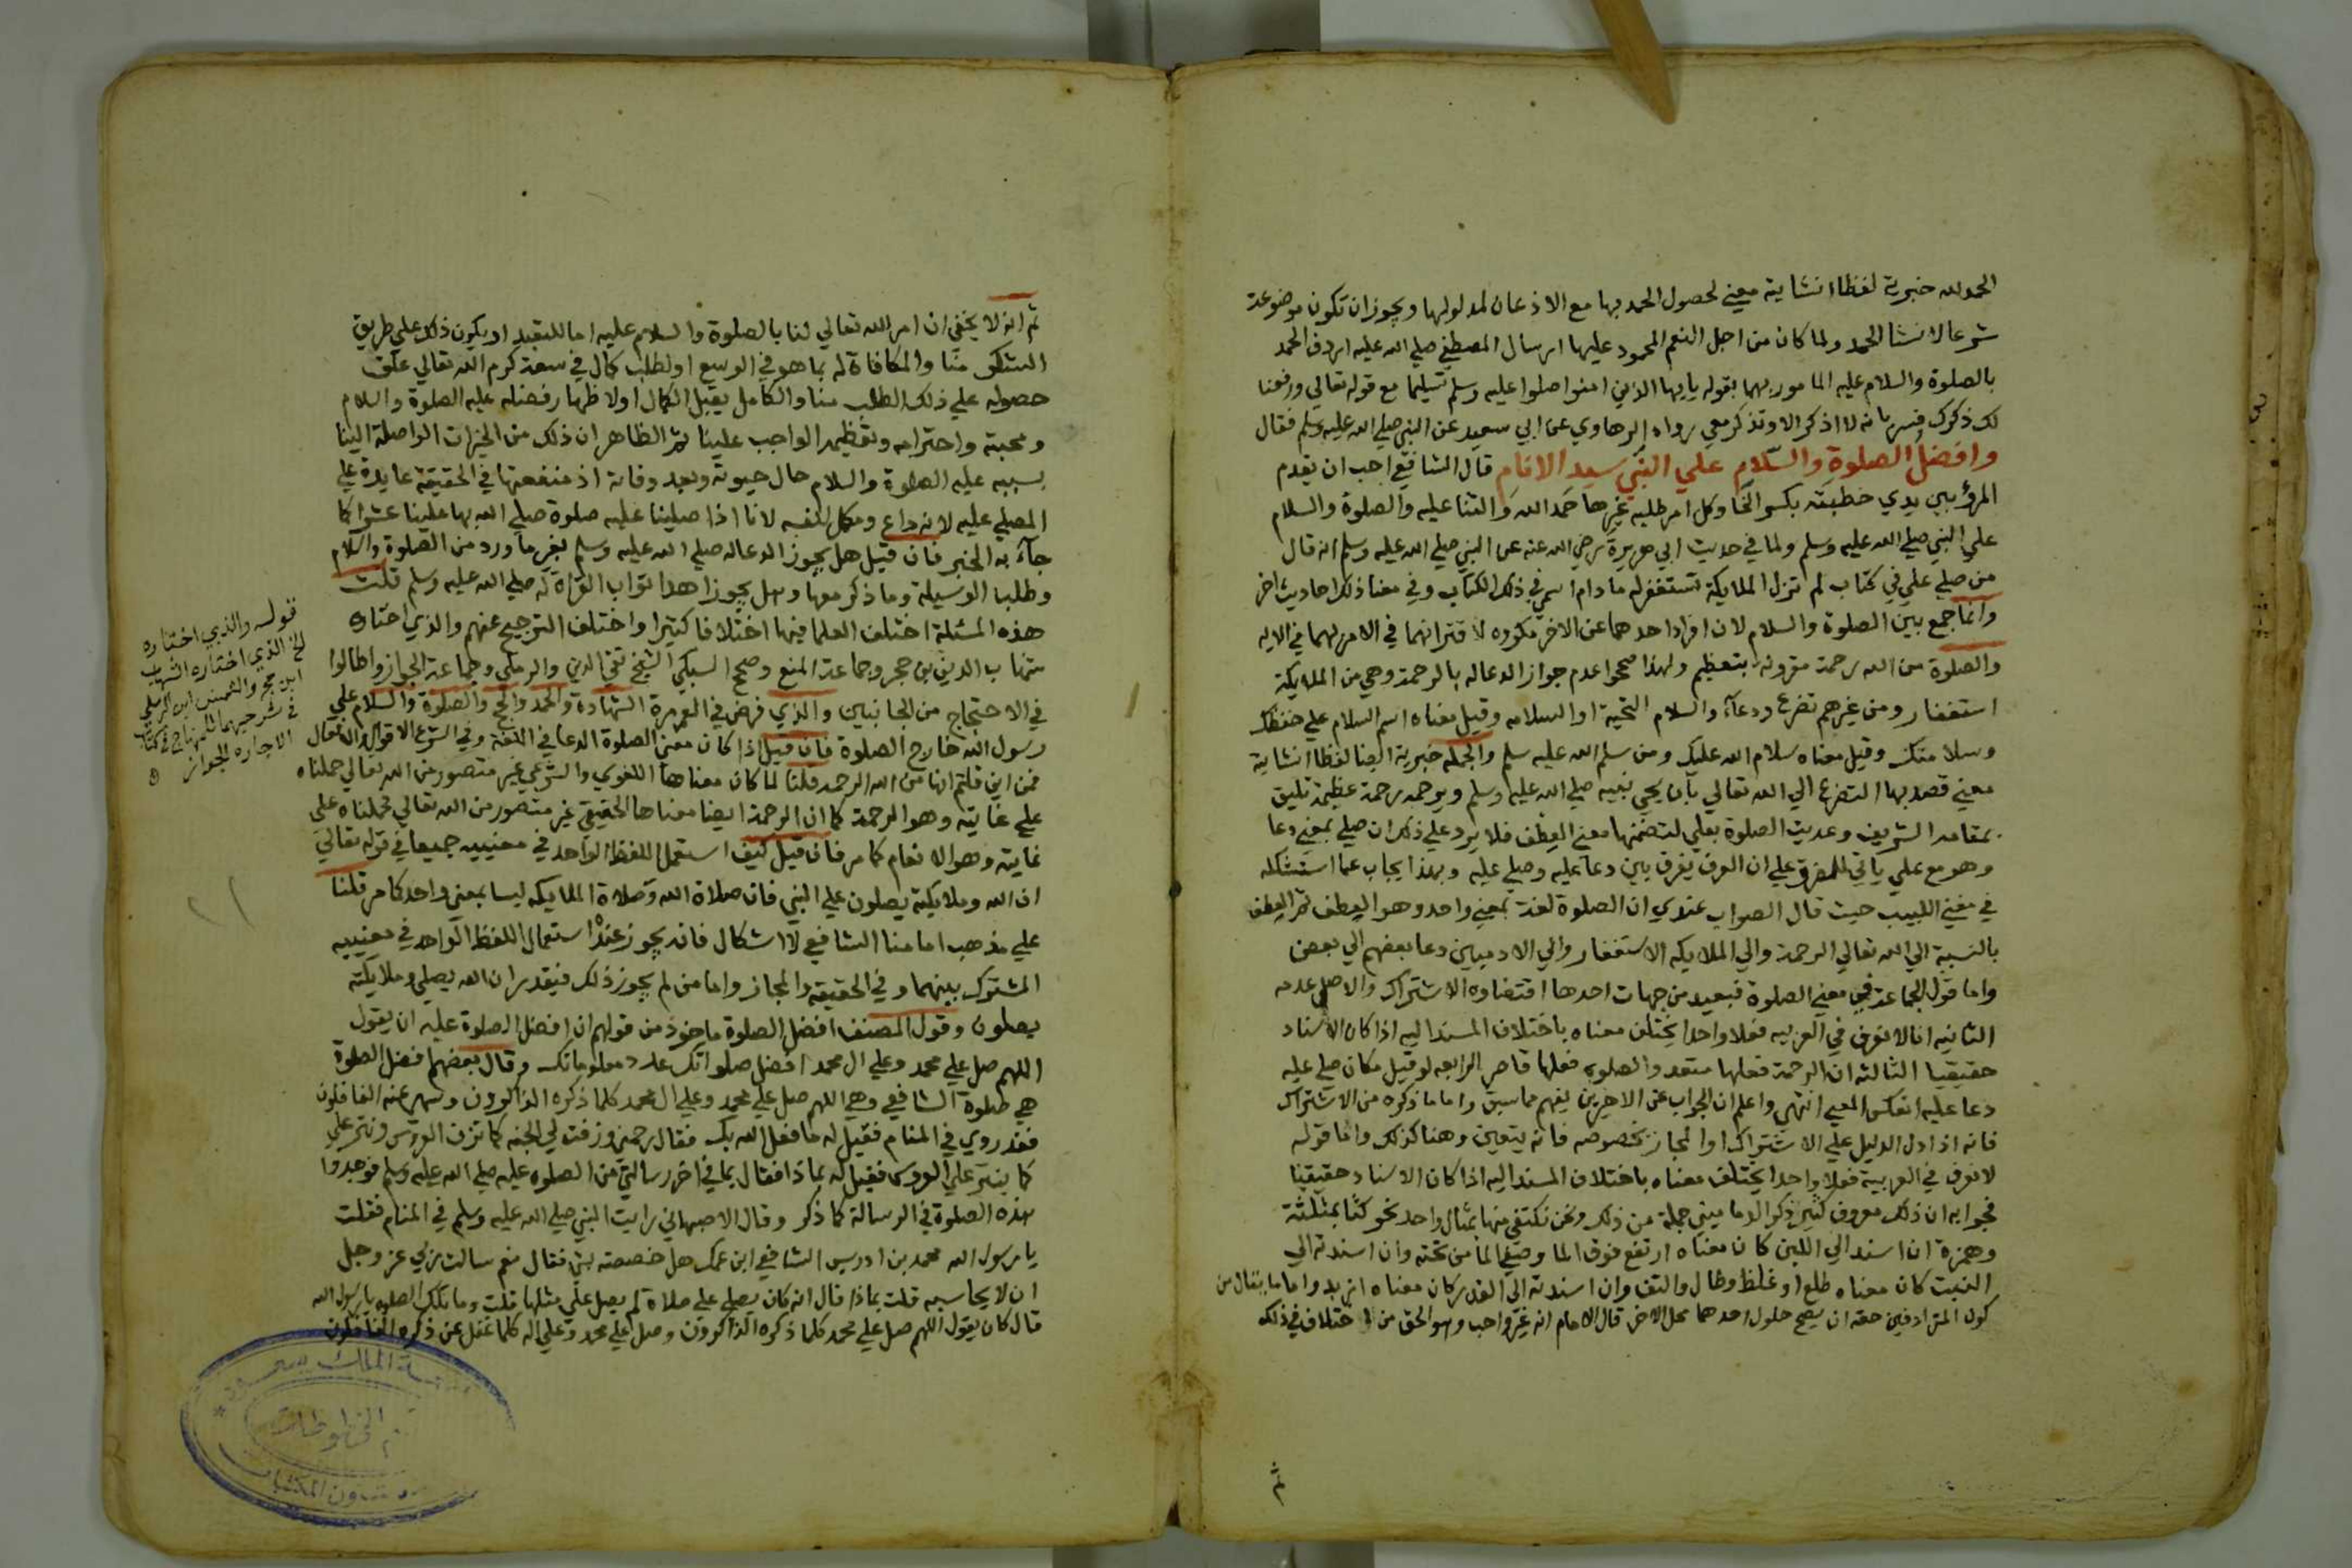 الحمد لله خبرية لفظا انشاية معني لحصول الحمد بها مع الاذعان لمدلولها ويجوز ان تكون موضوعة
شرعا لانشا الحمد ولما كان من اجل النعم المحمود عليها ارسال المصطفي صلي الله عليه اردف الحمد
بالصلوة والسلام عليه المامور بهما بقوله يايها الذين امنوا صلوا عليه وسلم تسليما مع قوله تعالي ورفعنا
لك ذكرك فسر بانه لا اذكر الا وتذكر معي رواه الرهاوي عن ابي سعيد عن النبي صلي الله عليه وسلم فقال
وافضل الصلوة والسلام علي النبي سيد الانام قال الشافعي احب ان يقدم
المرؤ بين يدي خطبته بكسر الخا وكل امر طلبه غيرها حمد الله والثنا عليه والصلوة والسلام
علي النبي صلي الله عليه وسلم ولما في حديث ابي هريرة رضي الله عنه عن النبي صلي الله عليه وسلم انه قال
من صلي علي في كتاب لم تزل الملايكة تستغفر له ما دام اسمي في ذلك الكتاب وفي معنا ذلك احاديث اخر
وانما جمع بين الصلوة والسلام لان افراد احدهما عن الاخر مكروه لاقترانهما في الامر لهما في الايه
والصلوة من الله رحمة مقرونة بتعظيم ولهذا صححوا عدم جواز الدعاله بالرحمة وهي من الملايكة
استغفار ومن غيرهم تضرع ودعآء والسلام التحية او السلامه وقيل معناه اسم السلام علي حفظك
وسلامتك وقيل معناه سلام الله عليك ومن سلم الله عليه سلم والجمله خبرية ايضا لفظا انشاية
معني قصد بها التضرع الي الله تعالي بان يحيي نبيه صلي الله عليه وسلم ويرحمه رحمة عظيمة تليق
بمقامه الشريف وعديت الصلوة بعلي لتضمنها معني العطف فلا يرد علي ذلك ان صلي بمعني دعا
وهو مع علي ياتي للمضرة علي ان العرف يفرق بين دعا عليه وصلي عليه وبهذا يجاب عما استشكله
في مغني اللبيب حيث قال الصواب عندي ان الصلوة لغة بمعني واحد وهو العطف ثم العطف
بالنسبة الي الله تعالي الرحمة والي الملايكه الاستغفار والي الادميين دعا بعضهم الي بعض
واما قول الجماعة في معني الصلوة فبعيد من جهات احدها اقتضاوه الاشتراك والاصل عدمه
الثانيه انا لا نعرف في العربيه فعلا واحدا يختلف معناه باختلاف المسند اليه اذا كان الاسناد
حقيقيا الثالثه ان الرحمة فعلها متعد والصلوة فعلها قاصر الرابعه لو قيل مكان صلي عليه
دعا عليه انعكس المعني انتهي واعلم ان الجواب عن الاخيرين يفهم مما سبق واما ما ذكره من الاشتراك
فانه اذا دل الدليل علي الاشتراك او المجاز بخصوصه فانه يتعين وهنا كذلك واما قوله
لا نعرف في العربية فعلا واحدا يختلف معناه باختلاف المسند اليه اذا كان الاسناد حقيقيا
فجوابه ان ذلك معروف كثير ذكر الدماميني جملة من ذلك ونحن نكتفي منها بمثال واحد نحو كثا بمثلثة
وهمزة ان اسند الي اللبن كان معناه ارتفع فوق الما وصفي الما من تحته وان اسندته الي
النبت كان معناه طلع او غلظ وطال والتف وان اسندته الي القدر كان معناه ازبد واما ما يقال من
كون المترادفين حقه ان يصح حلول احدهما محل الاخر قال الامام انه غير واجب وهو الحق من اختلاف في ذلك
ثم
ثم انه لا يخفي ان امر الله تعالي لنا بالصلوة والسلام عليه اما للتعبد او يكون ذلك علي طريق
الشكر منا والمكافاة له بما هو في الوسع او لطلب كمال في سعة كرم الله تعالي علق
حصوله علي ذلك الطلب منا والكامل يقبل الكمال او لاظهار فضله عليه الصلوة والسلام
ومحبته واحترامه وتعظيمه الواجب علينا ثم الظاهر ان ذلك من الخيرات الواصلة الينا
بسببه عليه الصلوة والسلام حال حيوته وبعد وفاته اذ منفعتها في الحقيقة عايدة علي
المصلي عليه لانه داع ومكمل لنفسه لانا اذا صلينا عليه صلوة صلي الله بها علينا عشرا كما
جآء به الخبر فان قيل هل يجوز الدعاله صلي الله عليه وسلم بغير ما ورد من الصلوة والسلام
وطلب الوسيلة وما ذكر معها وهل يجوز اهدا ثواب القراة له صلي الله عليه وسلم قلت
هذه المسئلة اختلف العلما فيها اختلافا كثيرا واختلف الترجيح عنهم والذي اختاره
شهاب الدين بن حجر وجماعة المنع وصحح السبكي الشيخ تقي الدين والرملي وجماعة الجواز واطالوا
في الاحتجاج من الجانبين والذي فرض في العمرة الشهادة والحمد والحج والصلوة والسلام علي
رسول الله خارج الصلوة فان قيل اذا كان معني الصلوة الدعا في اللغة وفي الشرع الاقوال والافعال
فمن اين قلتم انها من الله الرحمه قلنا لما كان معناها اللغوي والشرعي غير متصور من الله تعالي حملناه
علي غايته وهو الرحمة كما ان الرحمة ايضا معناها الحقيقي غير متصور من الله تعالي فحملناه علي
غايته وهو الانعام كما مر فان قيل كيف استعمل اللفظ الواحد في معنييه جميعا في قوله تعالي
ان الله وملايكته يصلون علي النبي فان صلاة الله وصلاة الملايكه ليسا بمعني واحد كما مر قلنا
علي مذهب امامنا الشافعي لا اشكال فانه يجوز عنده استعمال اللفظ الواحد في معنييه
المشترك بينهما وفي الحقيقة والمجاز واما من لم يجوز ذلك فيقدر ان الله يصلي وملايكته
يصلون وقول المصنف افضل الصلوة ماخوذ من قولهم ان افضل الصلوة عليه ان يقول
اللهم صل علي محمد وعلي ال محمد افضل صلواتك عدد معلوماتك وقال بعضهم افضل الصلوة
هي صلوة الشافعي وهي اللهم صل علي محمد وعلي ال محمد كلما ذكره الذاكرون وسهي عنه الغافلون
فقد روي في المنام فقيل له ما فعل الله بك فقال رحمني وزفت لي الجنه كما تزف العروس ونثر علي
كما ينثر علي العروس فقيل له بماذا فقال بما في اخر رسالتي من الصلوه عليه صلي الله عليه وسلم فوجدوا
هذه الصلوة في الرسالة كما ذكر وقال الاصبهاني رايت النبي صلي الله عليه وسلم في المنام فقلت
يا رسول الله محمد بن ادريس الشافعي ابن عمك هل خصصته بشي فقال نعم سالت ربي عز وجل
ان لا يحاسبه قلت بماذا قال انه كان يصلي علي صلاة لم يصل علي مثلها قلت وما تلك الصلوه يا رسول الله
قال كان يقول اللهم صل علي محمد كلما ذكره الذاكرون وصل علي محمد وعلي اله كلما غفل عن ذكره الغافلون
قوله والذي اختاره
الخ الذي اختاره الشهاب
ابن حجر والشمس ابن الرملي
في شرحيهما للمنهاج في كتاب
الاجاره الجواز
الملك سعود
المخطوطات
شؤون المكتبات